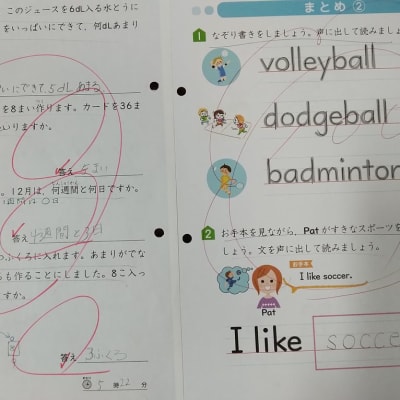 このジュースを6dL入る水とうに
をいっぱいにできて、何dLあまり
いにできて5dLあまる
を8まい作ります。カードを36ま
いりますか。
答え
12月は、何週間と何日ですか。
答え 4週間と3日
つふくろに入れます。あまりがでな
うも作ることにしました。8こ入っ
すか。
答え 3ふくろ
5 時 22 分
まとめ ②
1 なぞり書きをしましょう。声に出して読みましょ
volleyball
dodgeball
badminton
2 お手本を見ながら、Patがすきなスポーツを
しょう。文を声に出して読みましょう。
お手本
I like soccer.
Pat
I like socce